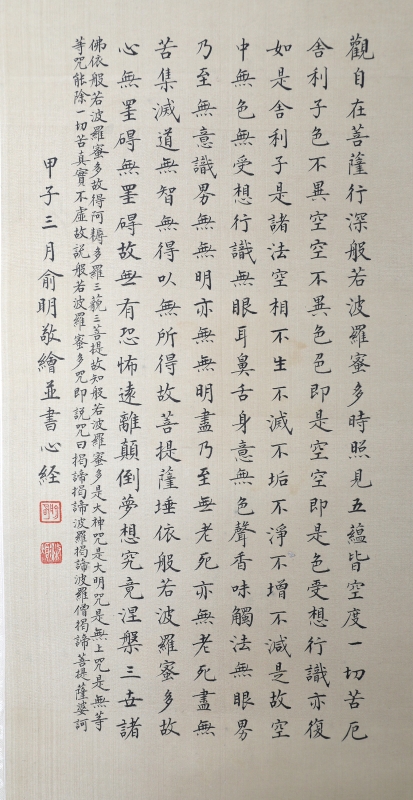 觀自在菩薩行深般若波羅蜜多時照見五蘊皆空度一切苦厄
舍利子色不異空空不異色色即是空空即是色受想行識亦復
如是舍利子是諸法空相不生不滅不垢不淨不增不減是故空
中無色無受想行識無眼耳鼻舌身意無色聲香味觸法無眼界
乃至無意識界無無明亦無無明盡乃至無老死亦無老死盡無
苦集滅道無智無得以無所得故菩提薩埵依般若波羅蜜多故
心無罣碍無罣碍故無有恐怖遠離顛倒夢想究竟涅槃三世諸
佛依般若波羅蜜多故得阿耨多羅三藐三菩提故知般若波羅蜜多是大神咒是大明咒是無上咒是無等
等咒能除一切苦真實不虛故説般若波羅蜜多咒即説咒曰揭諦揭諦波羅揭諦波羅僧揭諦菩提薩婆訶
甲子三月俞明敬繪並書心經